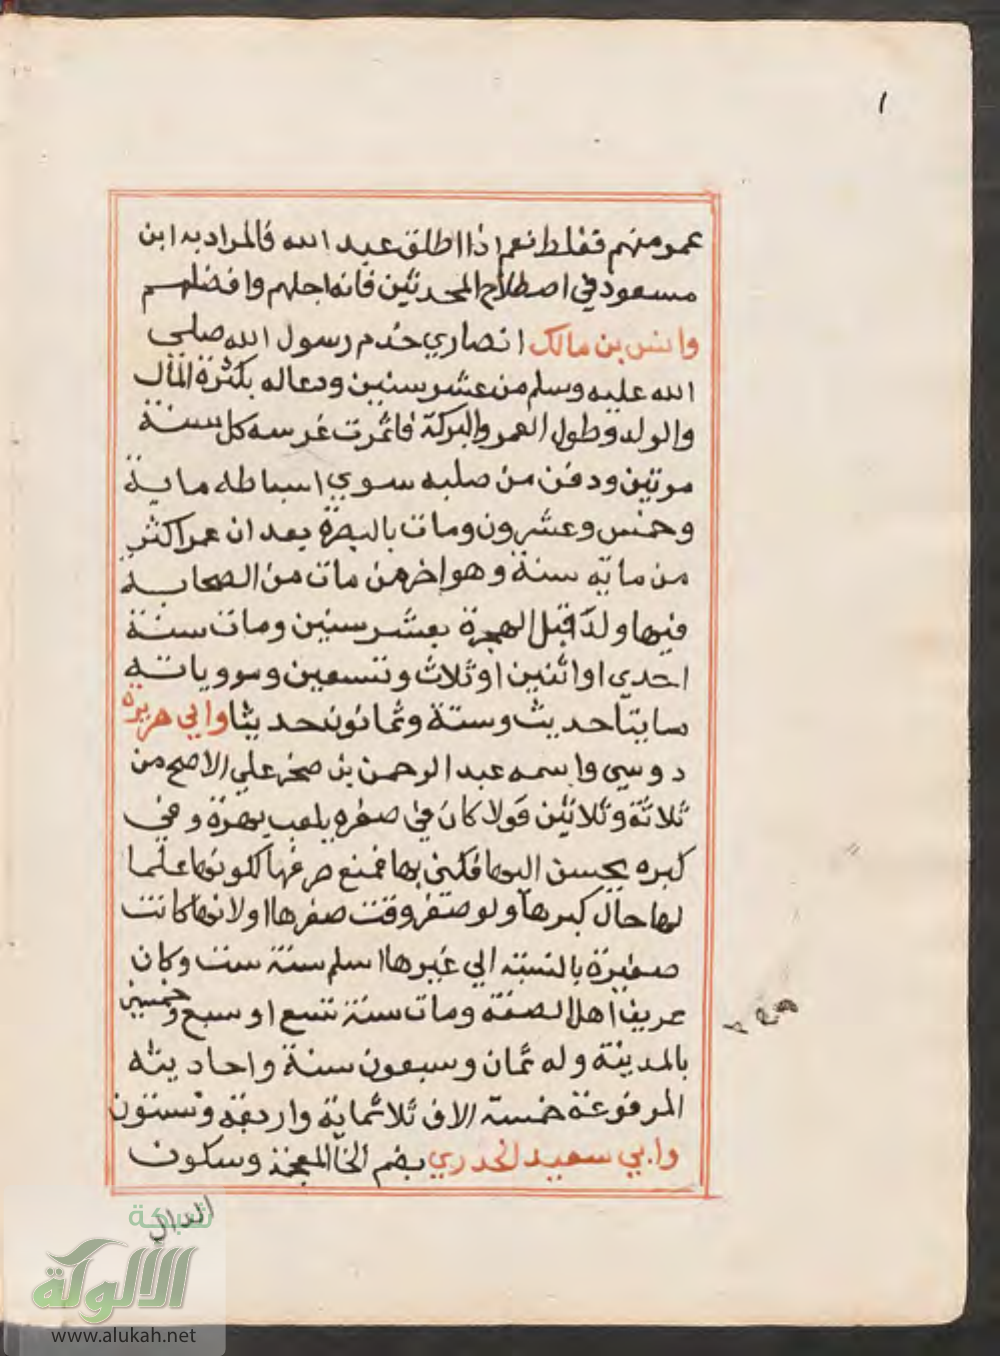 ١
عمر منهم فغلط نعم اذا اطلق عبد الله فالمراد به ابن
مسعود في اصطلاح المحدثين فانه اجلهم وافضلهم
وانس بن مالك انصاري خدم رسول الله صلى
الله عليه وسلم من عشر سنين ودعاله بكثرة المال
والولد وطول العمر والبركة فاثمرت غرسه كل سنة
مرتين ودفن من صلبه سوي اسباطه ماية
وخمس وعشرون ومات بالبصرة بعد ان عمر اكثر
من ماية سنة وهو اخر من مات من الصحابة
فيها ولد قبل الهجرة بعشر سنين ومات سنة
احدي او اثنين او ثلاث وتسعين ومروياته
حديث وستة وثمانون حديثا وابي هريرة
دوسي واسمه عبد الرحمن بن صخر علي الاصح من
ثلاثة وثلاثين قولا كان في صغره يلعب بهرة وفي
كبره يحسن اليها فكني بها فمنع صرفها لكونها علما
لها حال كبرها ولو صغر وقت صغرها اولانها كانت
صغيرة بالنسبة الي غيرها اسلم سنة ست وكان
عريف اهل الصفة ومات سنة تسع او سبع وخمسين
بالمدينة وله ثمان وسبعون سنة واحاديثه
المرفوعة خمسة الاف ثلاثماية واربعة وستون
وابي سعيد الخدري بضم الخا المعجمة وسكون
الدال
شبكة
الألوكة
www.alukah.net